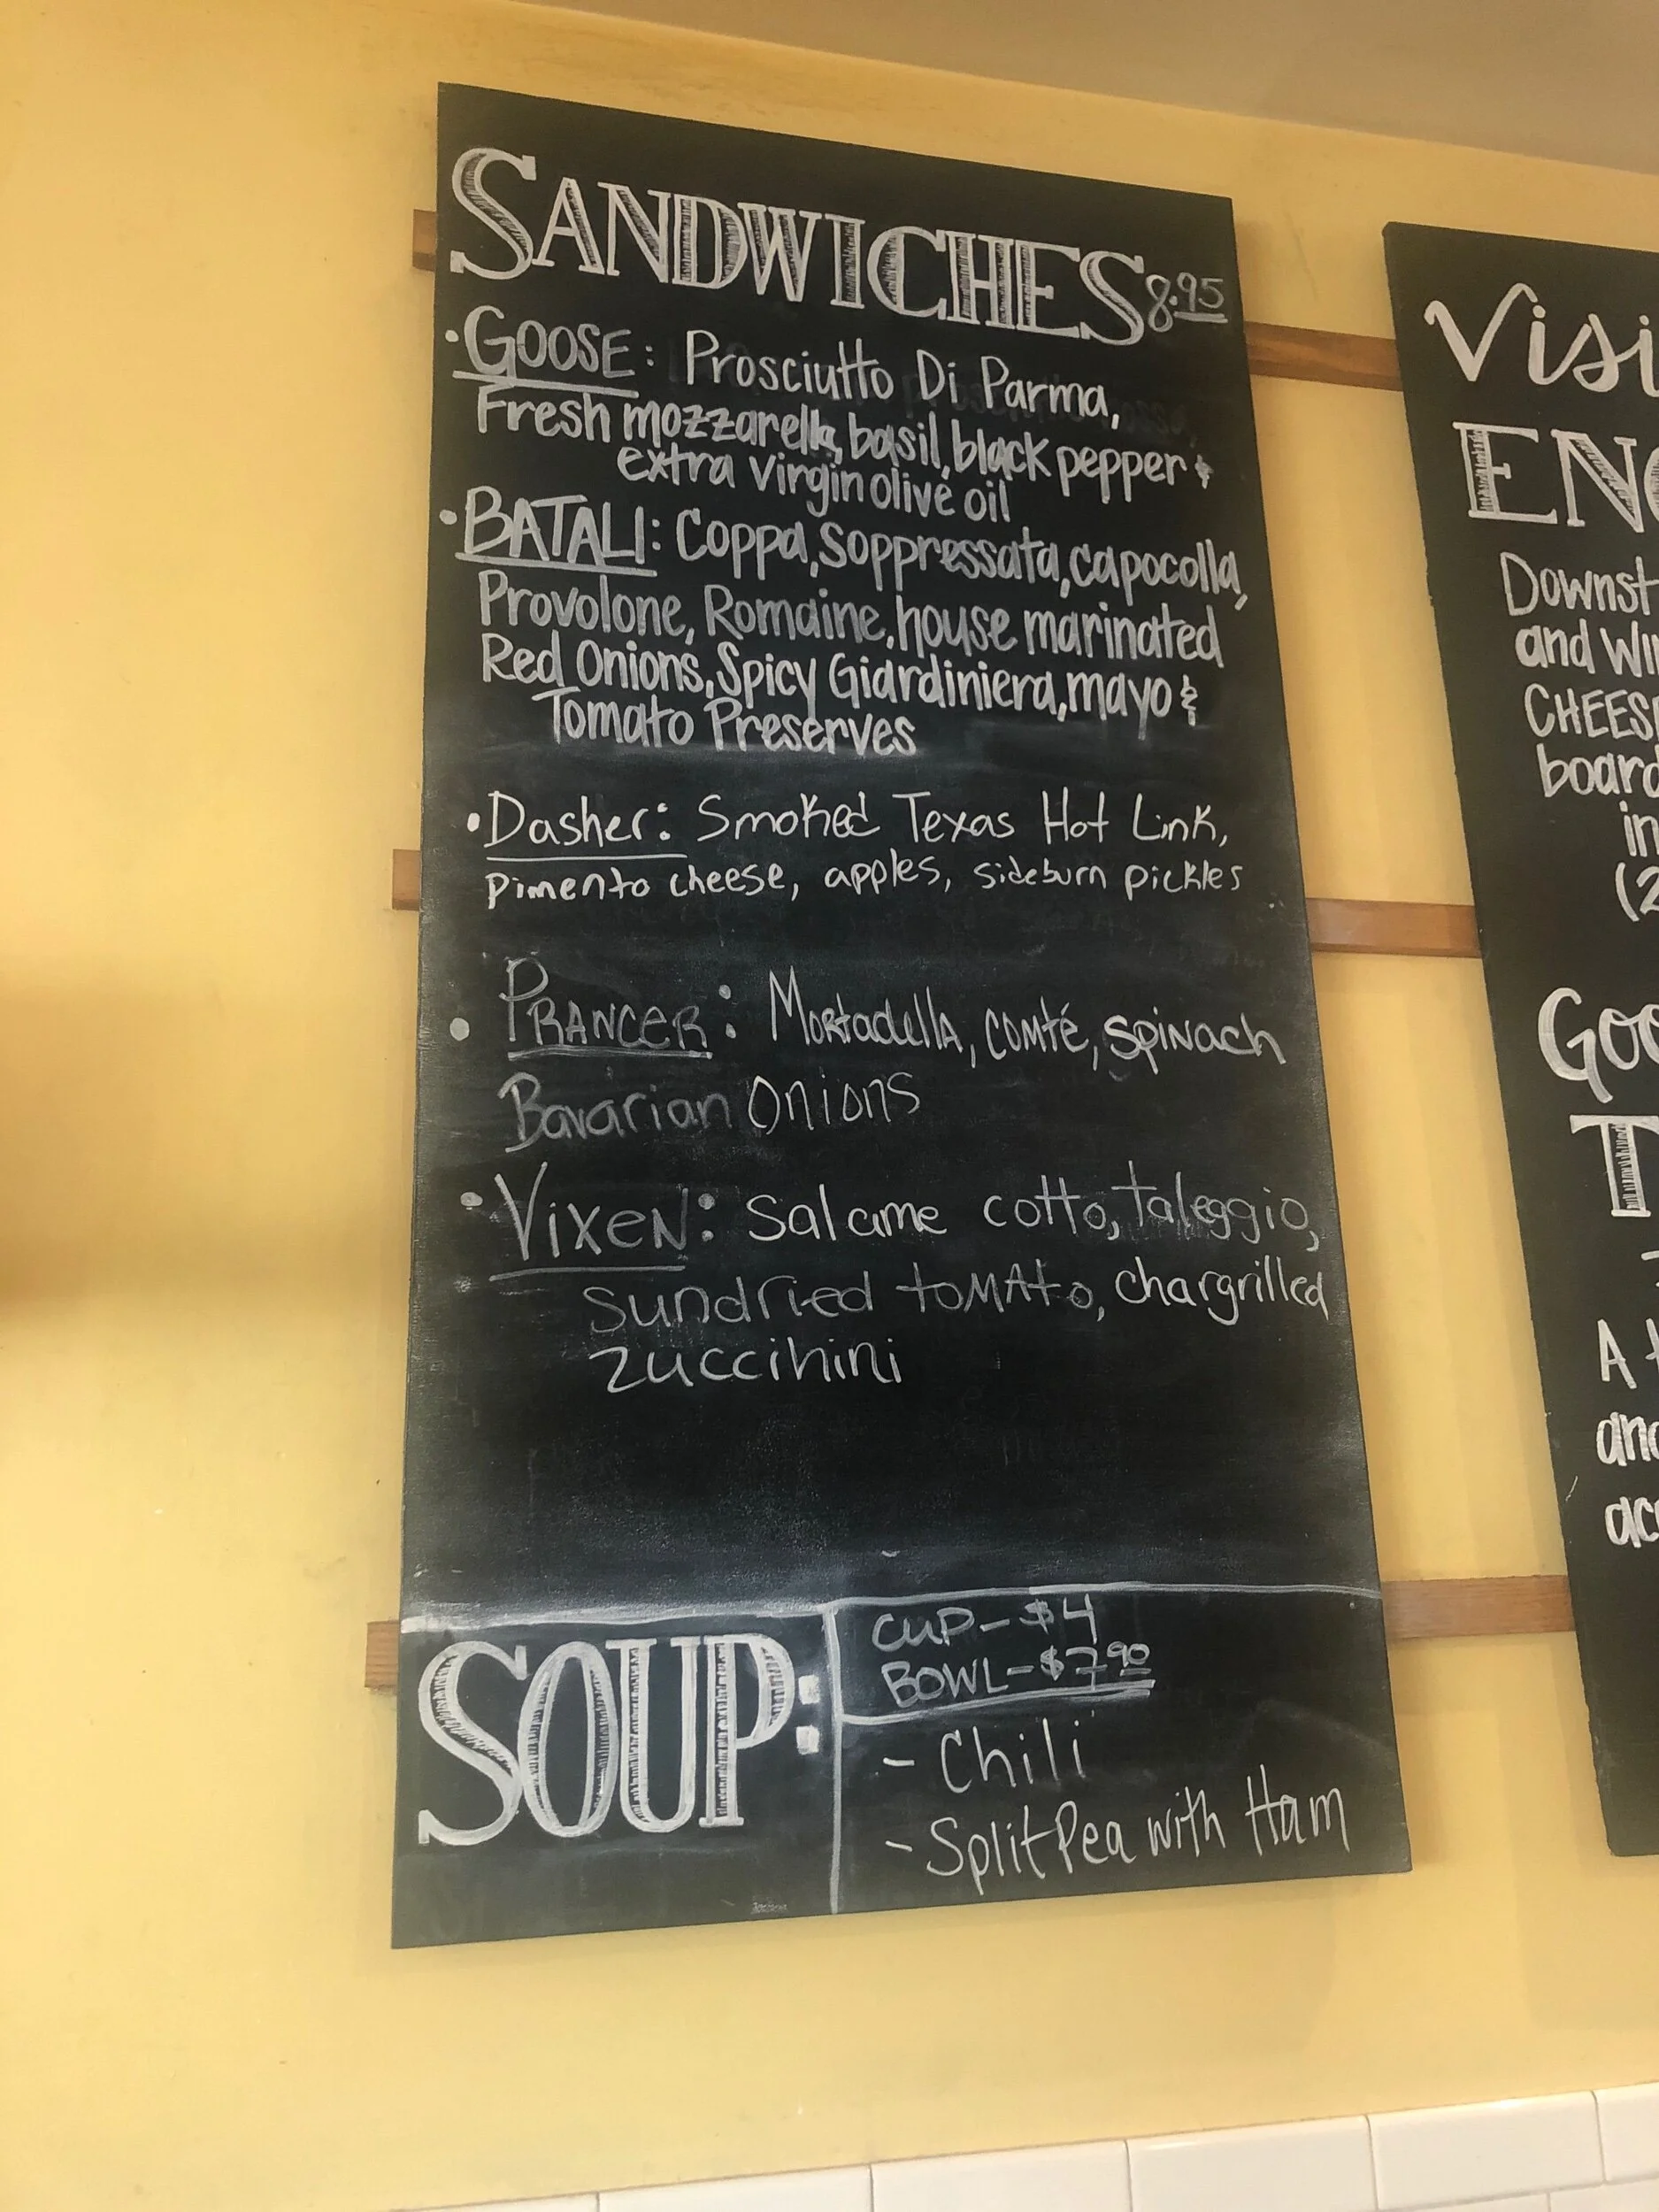 SANDWICHES 8.95
• GOOSE: Prosciutto Di Parma,
Fresh mozzarella, basil, black pepper &
extra virgin olive oil
• BATALI: Coppa, Soppressata, capocolla,
Provolone, Romaine, house marinated
Red Onions, Spicy Giardiniera, mayo &
Tomato Preserves
• Dasher: Smoked Texas Hot Link,
pimento cheese, apples, sideburn pickles
• PRANCER: Mortadella, comté, spinach
Bavarian Onions
• VIXEN: Salame cotto, taleggio,
sundried tomato, chargrilled
zuccihini
SOUP:
CUP - $4
BOWL - $7.90
- Chili
- Split Pea with Ham
Visi
EN
Downst
and Wi
CHEES
board
in
(2
Goo
T
A t
and
acc